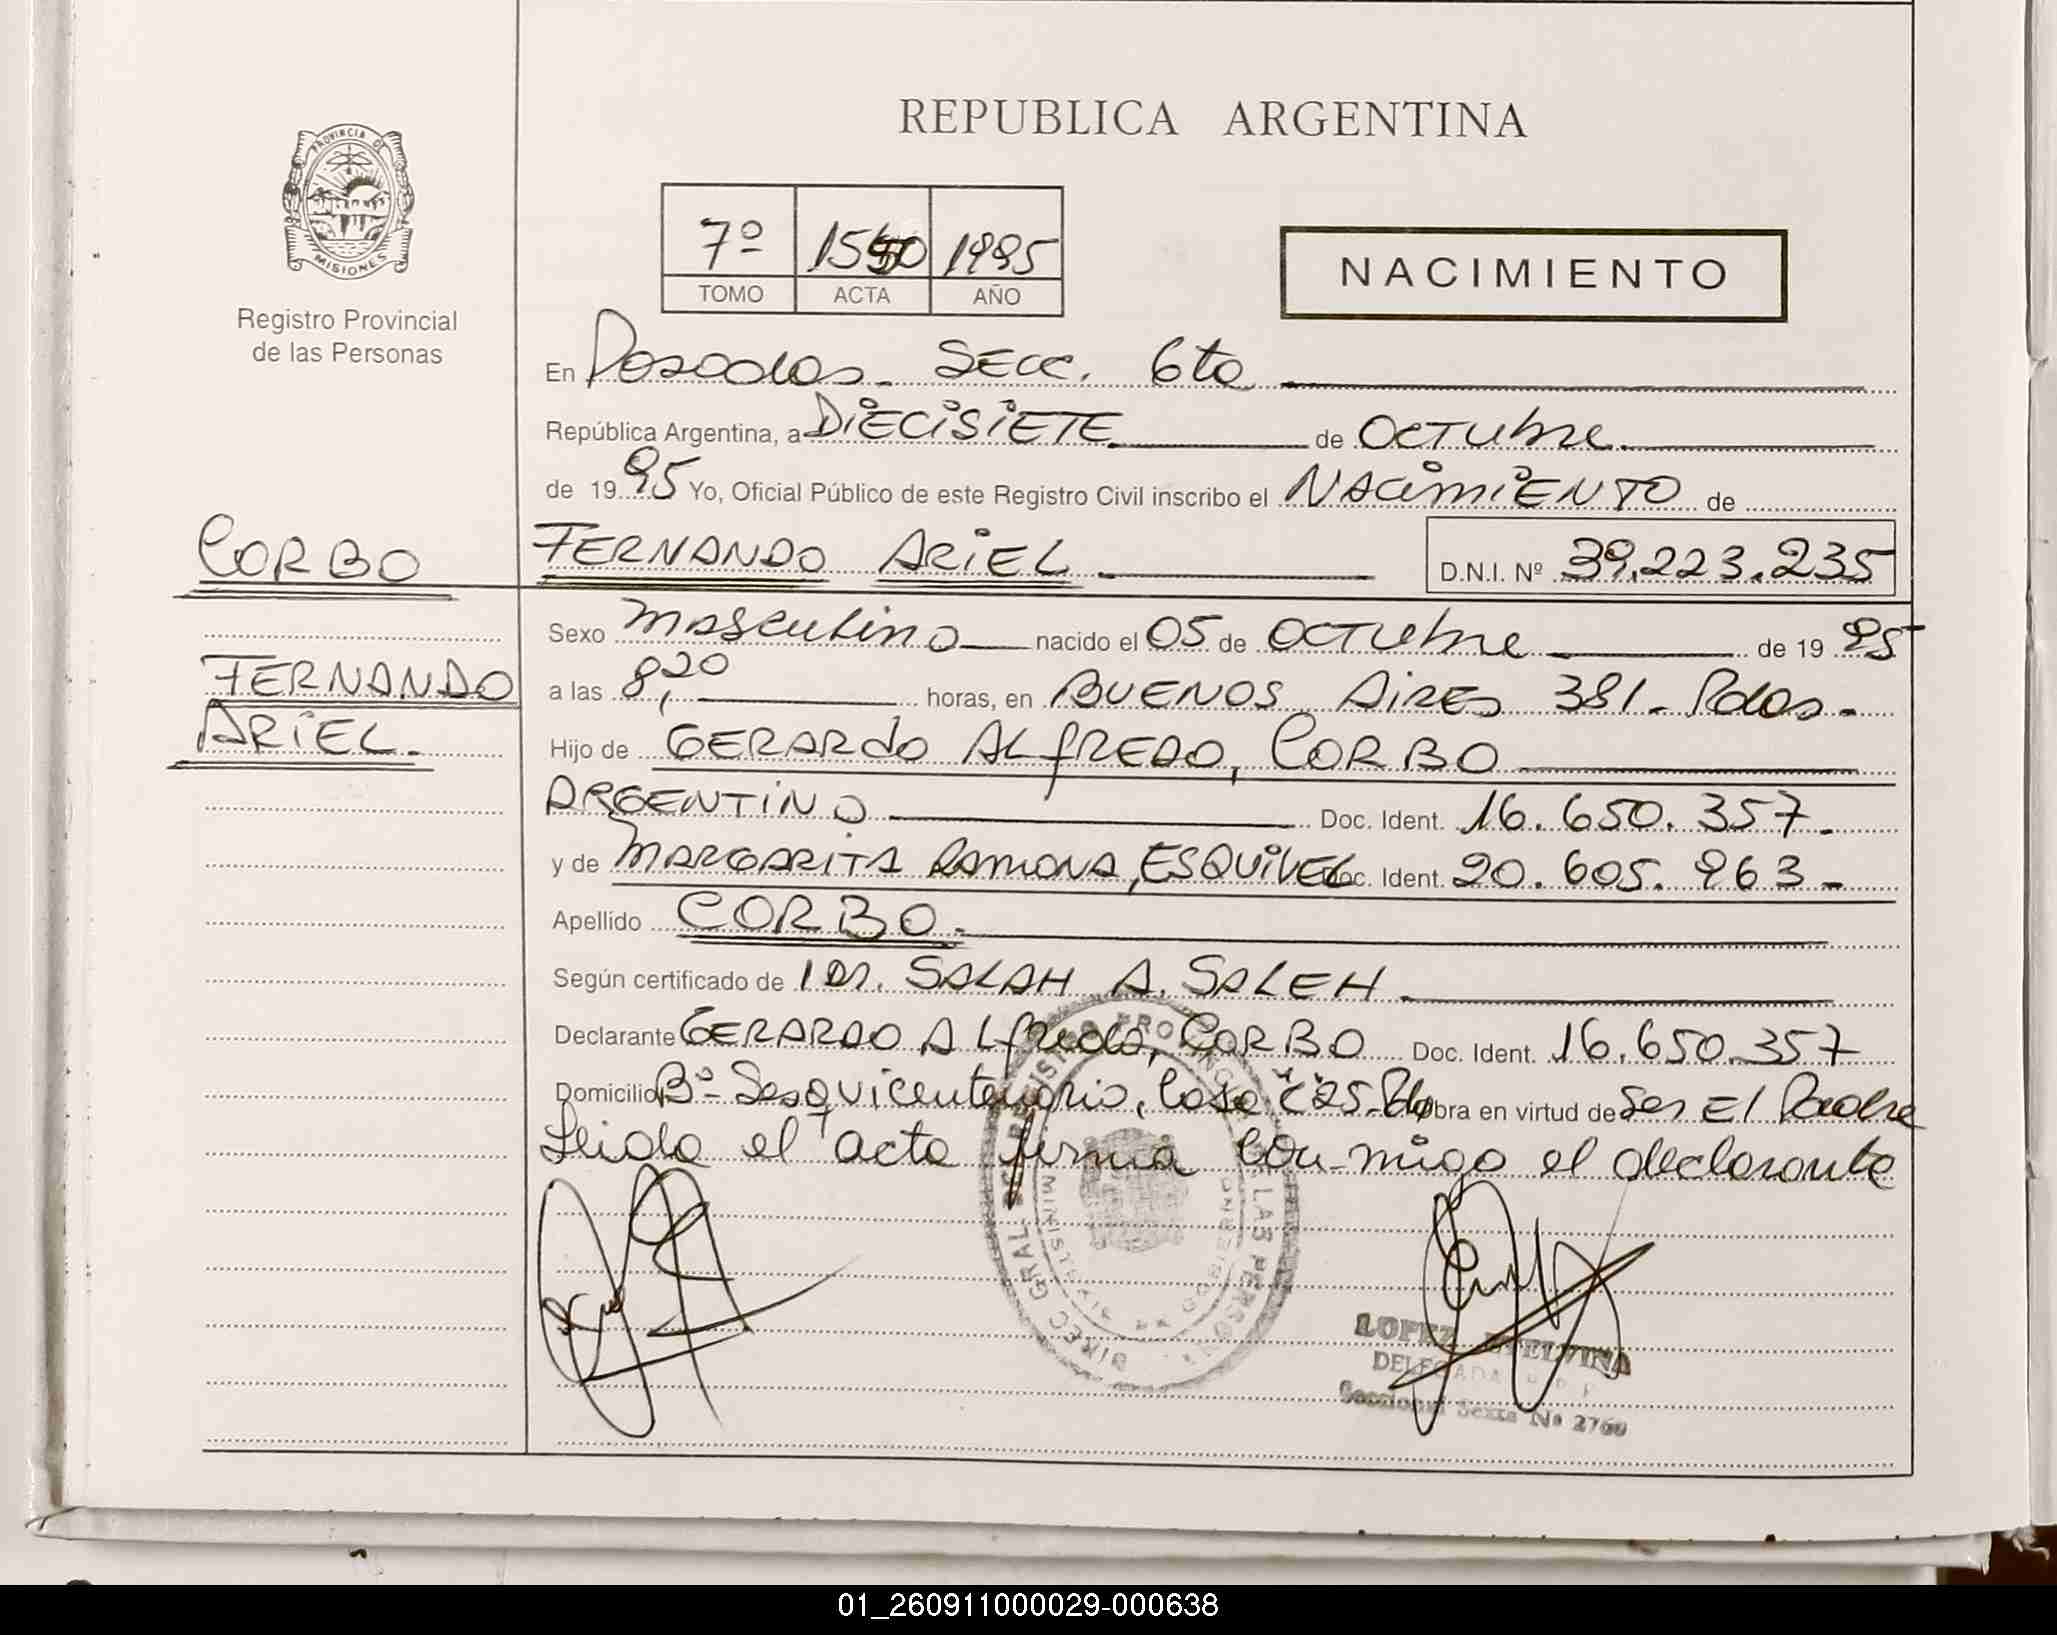 REPUBLICA ARGENTINA
PROVINCIA DE
MISIONES
Registro Provincial
de las Personas
7º 1550 1995
TOMO ACTA AÑO
NACIMIENTO
En Posadas. SECC. 6ta
República Argentina, a DIECISIETE de OCTUbre
de 1995 Yo, Oficial Público de este Registro Civil inscribo el NACIMIENTO de
CORBO FERNANDO ARIEL D.N.I. Nº 39.223.235
Sexo MASCULINO nacido el 05 de OCTUbre de 1995
FERNANDO
ARIEL.
a las 8,20 horas, en BUENOS AIRES 381. Pdas.
Hijo de GERARDO ALFREDO, CORBO
ARGENTINO Doc. Ident. 16.650.357.
y de MARGARITA RAMONA, ESQUIVEL Doc. Ident. 20.605.963.
Apellido CORBO.
Según certificado de Dr. SALAH A. SALEH
Declarante GERARDO ALfredo, CORBO Doc. Ident. 16.650.357
Domicilio Bº Sesquicentenario, Casa "C" 25. obra en virtud de Ser El Padre
Leida el acta firma con migo el declarante
DIREC. GRAL. REGISTRO PROVINCIAL DE LAS PERSON.
LOPEZ ETELVINA
DELEGADA R P P
Seccional Sexta Nº 2760
01_260911000029-000638